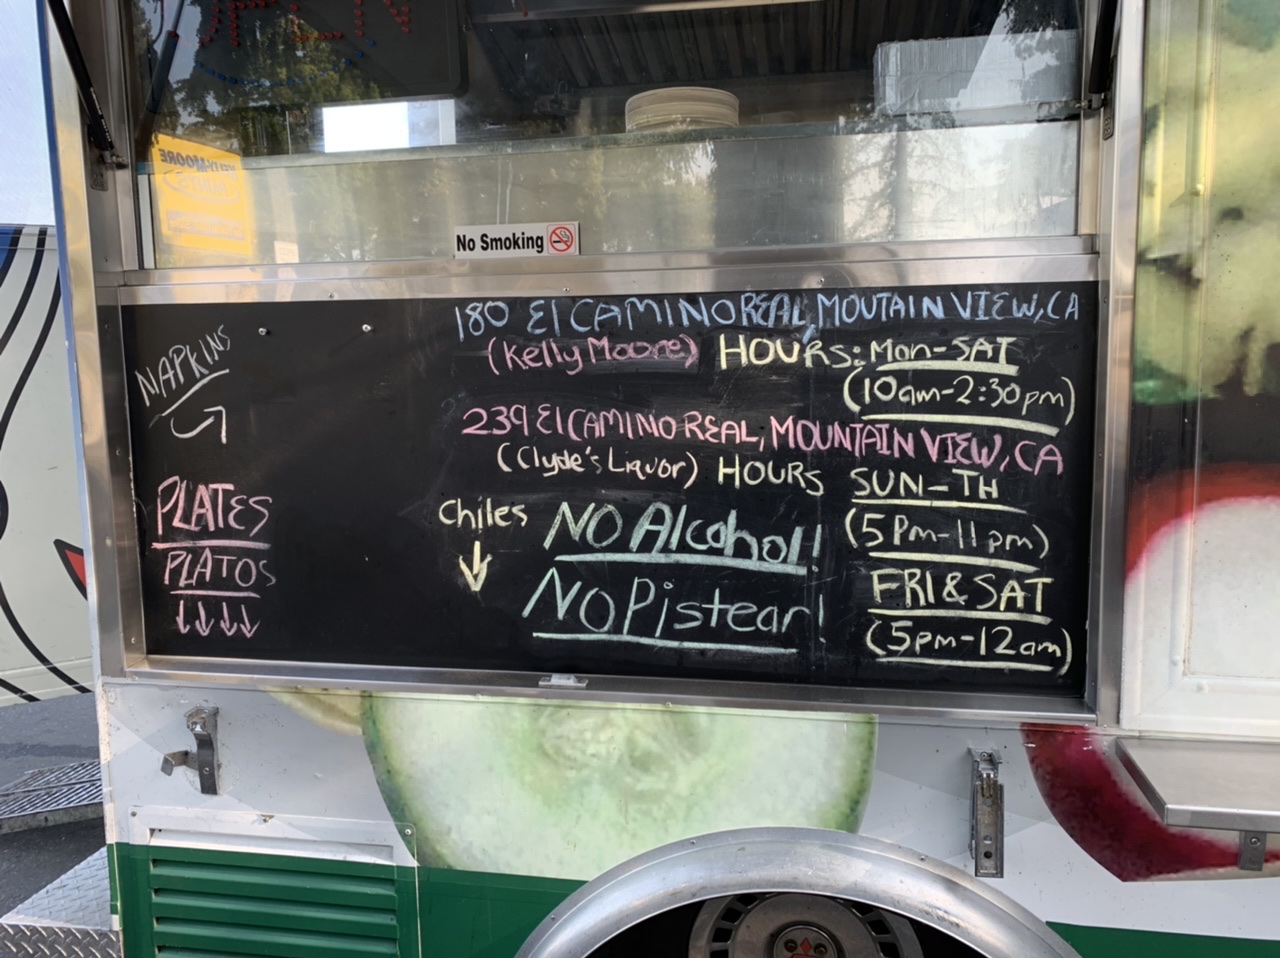 OPEN
KELLY-MOORE
PAINTS
No Smoking
180 El CAMINO REAL, MOUTAIN VIEW, CA
(Kelly Moore) HOURS: Mon-SAT
(10am-2:30pm)
239 El CAMINO REAL, MOUNTAIN VIEW, CA
(Clyde's Liquor) HOURS SUN-TH
(5Pm-11pm)
FRI & SAT
(5pm-12am)
NAPKINS
PLATES
PLATOS
Chiles
NO Alcohol!
NO Pistear!